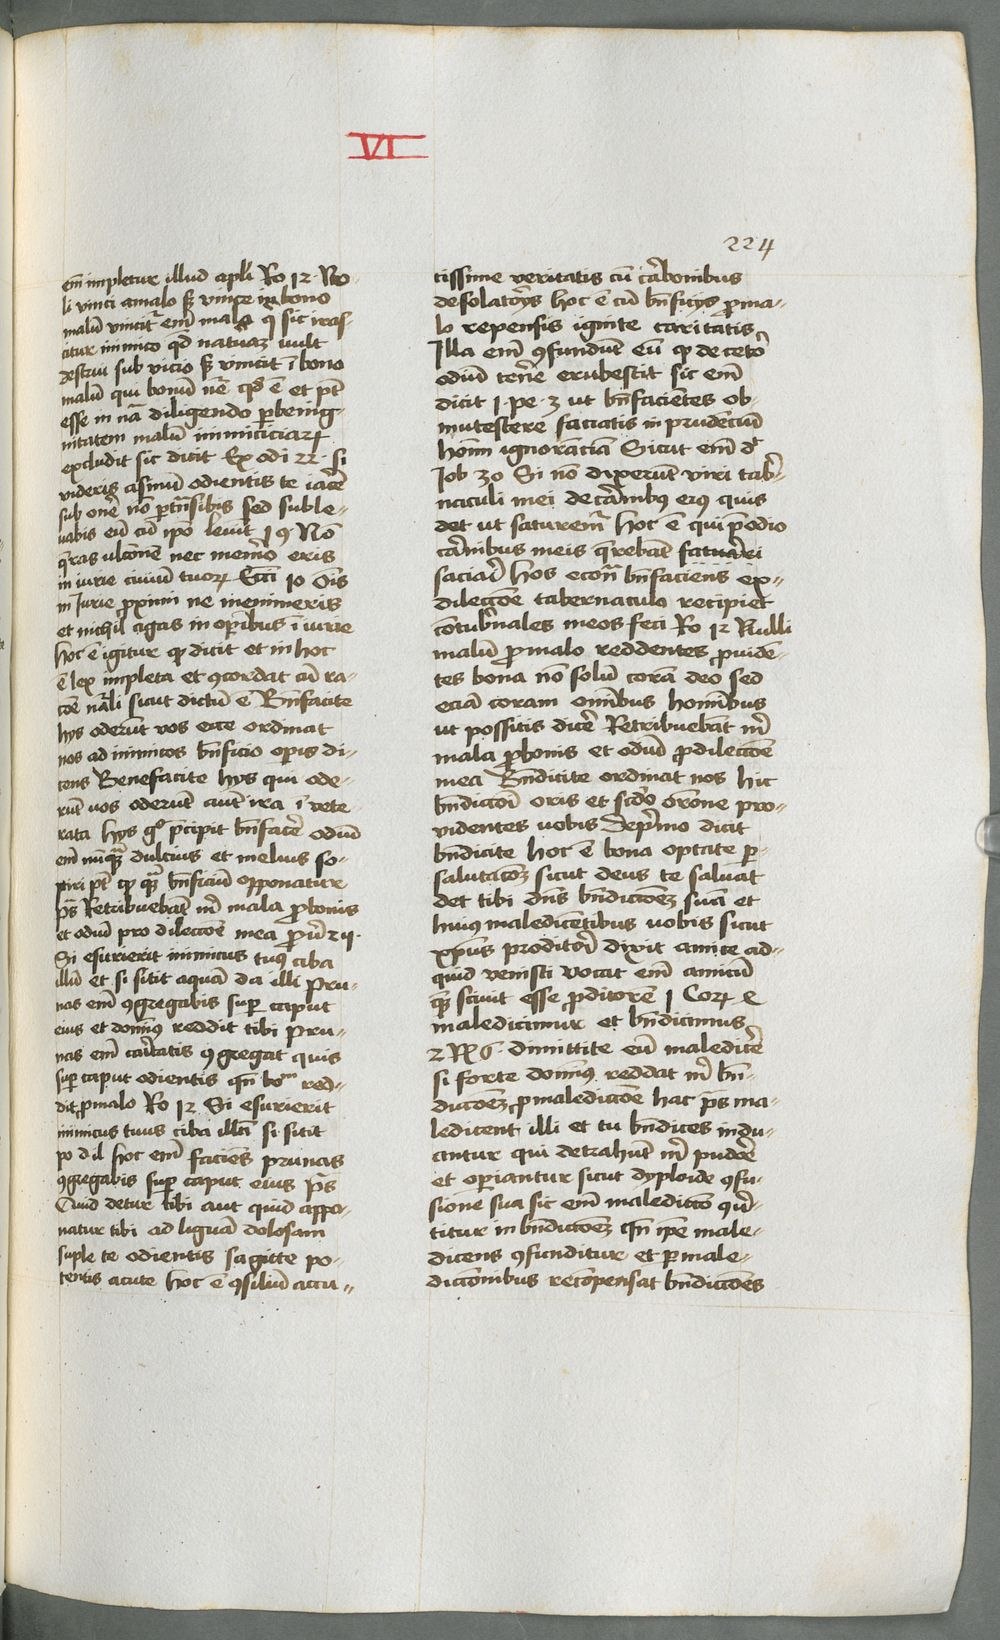 VI
224
em̄ impletur illud apłi Ro 12 · No-
li vinci amalo sꝫ vince in bono
malū vincit᷑ em̄ malo qͥ sic iras-
citur inimico qd̄ naturaꝫ vult
destrui sub vicio sꝫ vincit ī bono
malū qui bonū nr̄e qd̄ ē et pt̄
esse in nā diligendo ꝑbenig-
nitatem malū inimiciciaꝝ
excludit sic dicit Exodi 22 · si
videris asinū odientis te iacer̄
sub oner̄ nō ꝑtn̄sibis sed suble-
vabis eū cū ip̄o leuit 19 Nō
q̄ras ulcōnem nec memor eris
in iurie civiū tuoꝝ Ecci 10 Oīs
in Iurie ꝓximi ne memineris
et nichil agas in oꝑibus ī iurie
hoc ē igitur qͥ dicit et in hoc
ē lex impleta et ꝯcordat cū ra-
cōe nāli sicut dictū ē Bn̄facite
hys oderūt vos ecce ordinat
nos ad inimicos bn̄ficio oꝑis di-
cens Benefacite hys qui ode-
rūt vos oderūt aut̄ ira ī vete
rata hys gͦ p̄cipit bn̄facer̄ odiū
em̄ nūqͣꝫ dulcius et melius so-
piri pt̄ qͥ qͣꝫ bn̄ficiū opponatur
ps̄ Retribuebāt m̄ mala ꝓbonis
et odiū pro dilectōe mea ꝓu̇ 24 ·
Si esurierit inimicus tuꝰ ciba
illū et si sitit aquā da illi pru-
nas em̄ ꝯgregabis suꝑ caput
eius et domīꝰ reddit tibi Pru-
nas em̄ caritatis ꝯgregat quis
suꝑ caput odientis qn̄ boᵐ red-
dit ꝓmalo Ro 12 Si esurierit
inimicus tuus ciba illū si sitit
po d il hoc em̄ faciēs prunas
ꝯgregabis suꝑ caput eius ps̄
Quid detur tibi aut quid appo-
natur tibi ad liguā dolosam
suple te odientis sagitte po-
tentis acute hoc ē ꝯsiliū accu-
tissime veritatis cū cͣbonibus
desolatorys hoc ē cū bn̄ficys ꝓma-
lo repensis ignite caritatis
Illa em̄ ꝯfundūt eū qͥ de cetͦ
odiū tener̄e erubescit sic em̄
dicit 1 · pe · 3 ut bn̄facientes ob-
mutescere faciatis in prudenciū
hoīm ignoranciā Sicut em̄ dͬ
Iob 30 Si nō dixerūt viri tab̄
naculi mei de cͣnibꝰ eiꝰ quis
det ut saturem᷑ hoc ē qui p̄odio
cͣnibus meis q̄rebāt saturari
saciari hos ecōn̄ bn̄faciens ex-
dilectōe tabernaculo recipiet
cōtub̄nales meos feci Ro 12 Nulli
malū ꝓmalo reddentes ꝓuidē-
tes bona nō solū corā deo sed
eciā coram omībus homībus
ut possitis dicer̄ Retribuebāt m̄
mala ꝓbonis et odiū ꝓdilectōe
mea Bn̄dicite ordinat nos hic
bn̄dictōi oris et scd̄o orōne pro-
videntes vobis De pͥmo dicit
bn̄dicite hoc ē bona optate ꝑ-
salutacōꝫ sicut deus te saluāt
det tibi dn̄s bn̄dictōeꝫ suā et
huiꝰ maledicētibus vobis sicut
xp̄us proditori dixit amice ad-
quid venisti vocat em̄ amicū
quē scivit esse ꝓditorē 1 Coꝝ e
maledicimur et bn̄dicimus
2 R 16 · dimittite eū maledicer̄
si forte domīꝰ reddat m̄ bn̄-
dictōeꝫ ꝓmaledictōe hac ps̄ ma-
ledicent illi et tu bn̄dices indu-
antur qui detrahūt m̄ pudor̄e
et oꝑiantur sicut dyploide ꝯfu-
sione sua sic em̄ maledictō ꝯu̇-
titur in bn̄dictōeꝫ qn̄ ip̄e male-
dicens ꝯfunditur et ꝑ male-
dictōnibus recōpensat bn̄dictōes